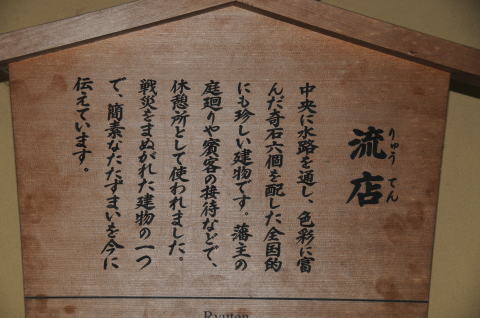 流店
りゅう てん
中央に水路を通し、色彩に富
んだ奇石六個を配した全国的
にも珍しい建物です。藩主の
庭廻りや賓客の接待などで、
休憩所として使われました。
戦災をまぬがれた建物の一つ
で、簡素なたたずまいを今に
伝えています。
Ryuten